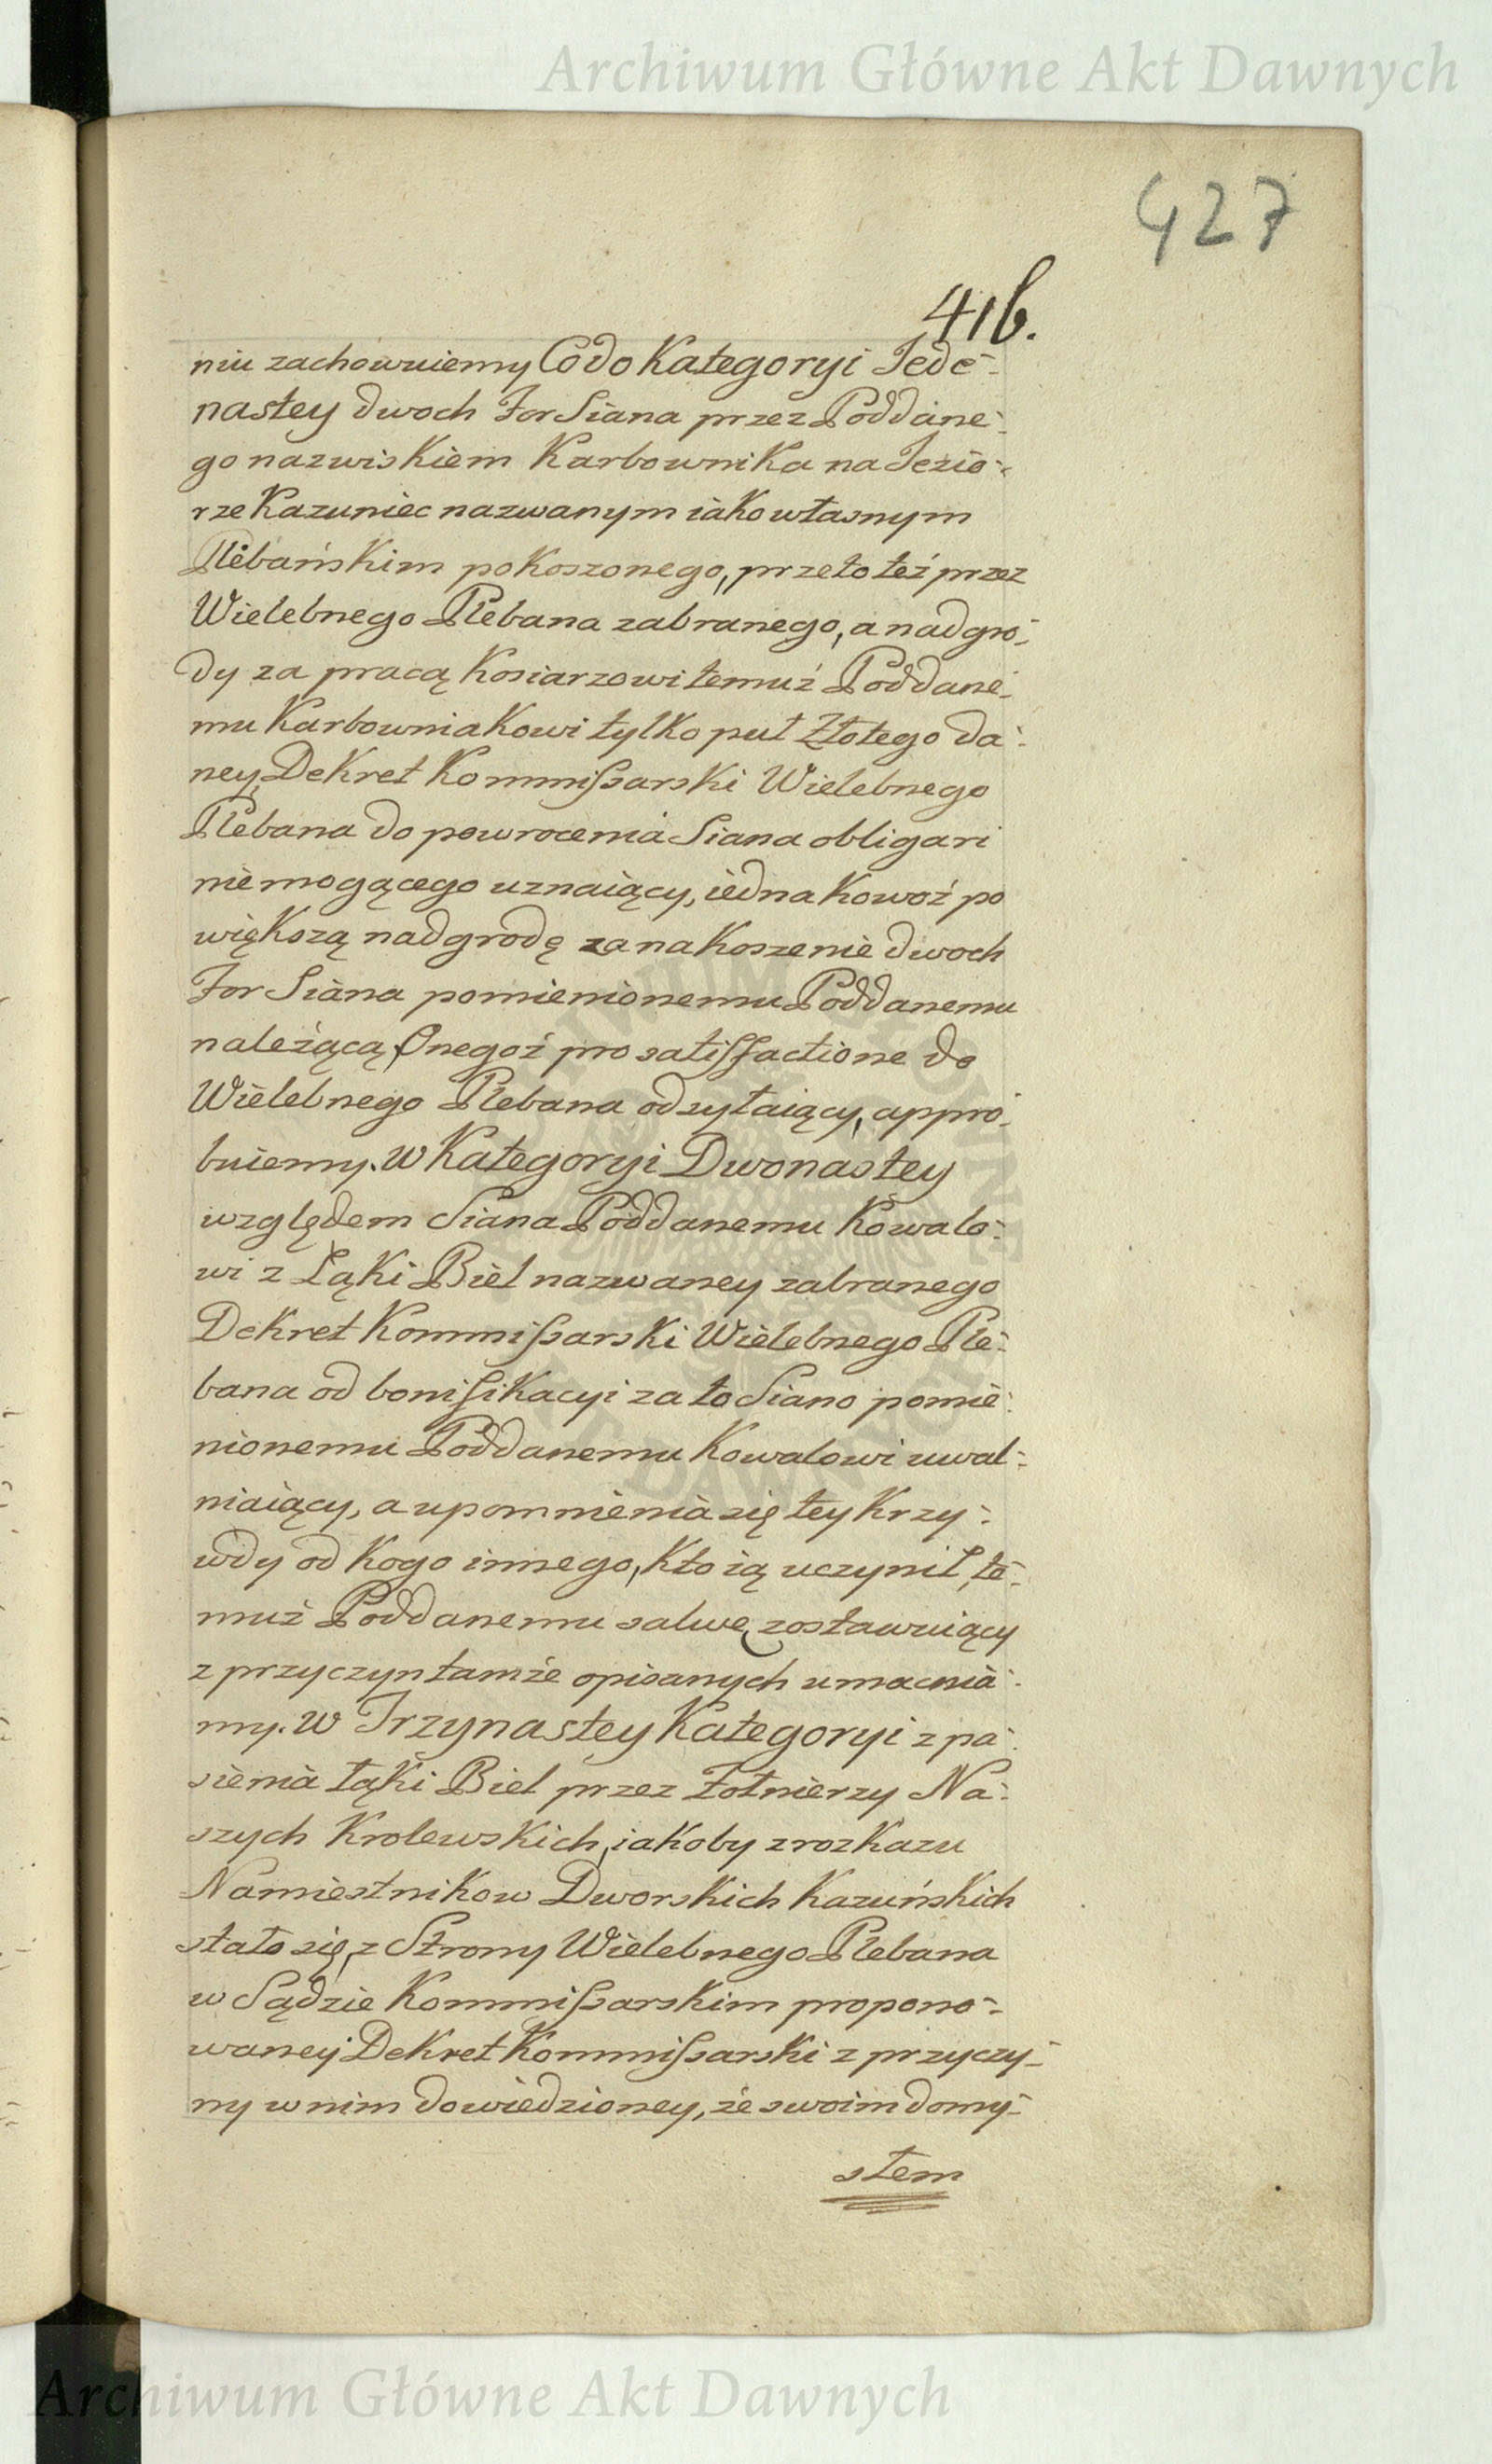 Archiwum Główne Akt Dawnych
427
416.
niu zachowuiemy Co do Kategoryi Jede-
nastey dwoch For Siana przez Poddane-
go nazwiskiem Karbownika na Jezio-
rze Kazuniec nazwanym iako własnym
Plebańskim pokoszonego, przeto też przez
Wielebnego Plebana zabranego, a nadgro-
dy za pracą Kosiarzowi temuż Poddane-
mu Karbowniakowi tylko puł Złotego da-
ney, Dekret Kommissarski Wielebnego
Plebana do powrocenia Siana obligari
niemogącego uznaiący, iednakowoż po
większą nadgrodę za nakoszenie dwoch
For Siana pomienionemu Poddanemu
należącą, Onegoż pro satisfactione do
Wielebnego Plebana odsyłaiący, appro-
buiemy. W Kategoryi Dwonastey
względem Siana Poddanemu Kowalo-
wi z Łąki Biel nazwaney zabranego
Dekret Kommissarski Wielebnego Ple-
bana od bonifikacyi za to Siano pomie-
nionemu Poddanemu Kowalowi uwal-
niaiący, a upomnienia się tey Krzy-
wdy od kogo innego, kto ią uczynił, te-
muż Poddanemu salwę zostawuiący
z przyczyn tamże opisanych umacnia-
my. W Trzynastey Kategoryi z pa-
sienia łąki Biel przez Żołnierzy Na-
szych Krolewskich, iakoby z rozkazu
Namiestnikow Dworskich Kazuńskich
stało się, z Strony Wielebnego Plebana
w Sądzie Kommissarskim propono-
waney Dekret Kommissarski z przyczy-
ny w nim dowiedzioney, że swoim domy-
słem
Archiwum Główne Akt Dawnych